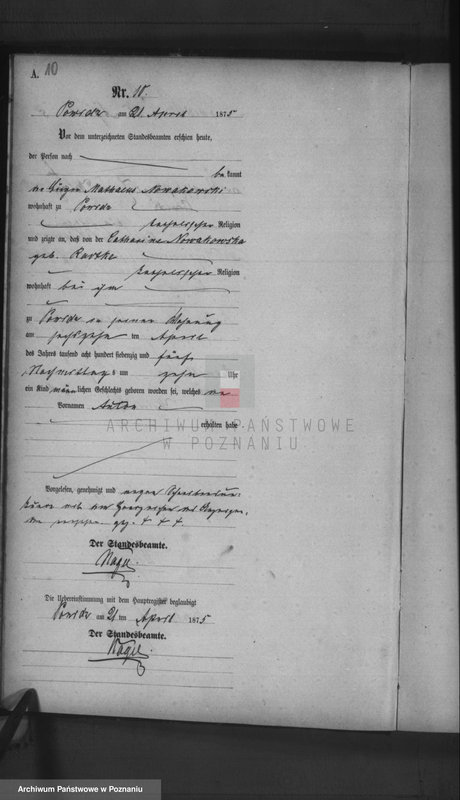 A. 10
Nr. 10.
Powidz am 21. April 1875
Vor dem unterzeichneten Standesbeamten erschien heute,
der Person nach
bekannt
der Bürger Mathaeus Nowakowski
wohnhaft zu Powidz
katholischer Religion
und zeigte an, daß von der Catharina Nowakowska
geb. Radtke
katholischer Religion
wohnhaft bei ihm
zu Powidz in seiner Wohnung
am sechszehn ten April
des Jahres tausend acht hundert siebenzig und fünf
Nachmittag s um zehn Uhr
ein Kind männlichen Geschlechts geboren worden sei, welches
Vornamen Anton
erhalten habe.
ARCHIWUM PAŃSTWOWE
W POZNANIU
Vorgelesen, genehmigt und wegen Schreibensun-
kunde mit dem Handzeichen des
versehen gez. + + +
Der Standesbeamte.
Nagel
Die Uebereinstimmung mit dem Hauptregister beglaubigt
Powidz am 21 ten April 1875
Der Standesbeamte.
Nagel
Archiwum Państwowe w Poznaniu